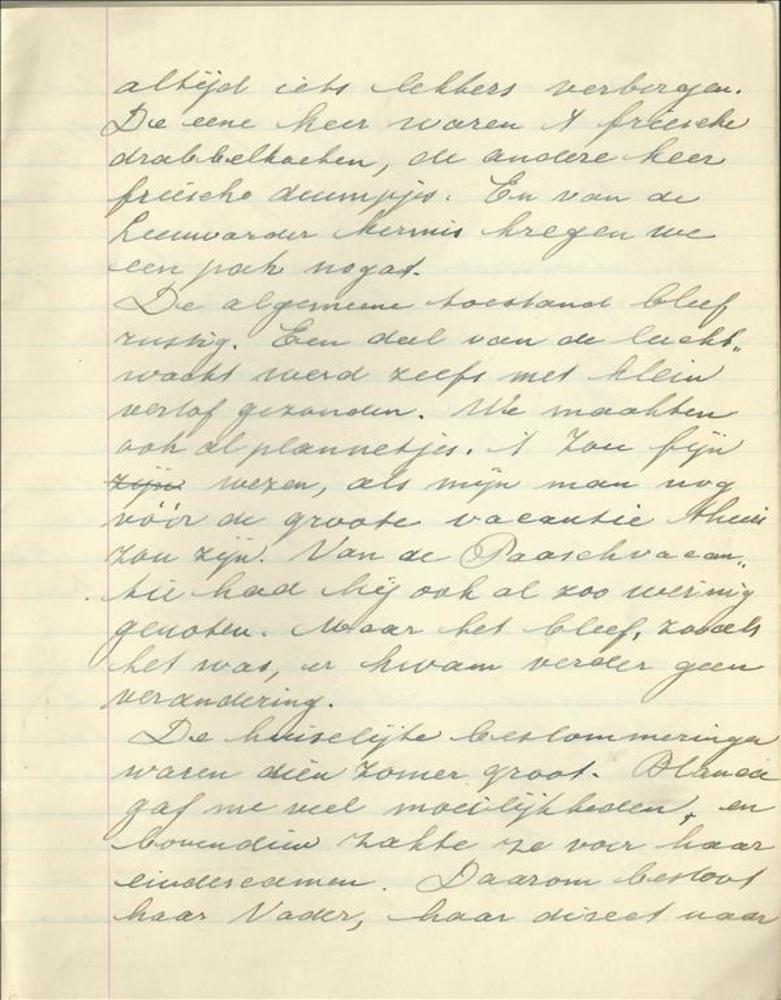 altijd iets lekkers verborgen.
De eene keer waren 't friesche
drabbelkoeken, de andere keer
friesche duumpjes. En van de
Leeuwarder kermis kregen we
een pak nogat.
De algemeene toestand bleef
rustig. Een deel van de lucht„
wacht werd zelfs met klein
verlof gezonden. We maakten
ook al plannetjes. 't Zou fijn
zijn wezen, als mijn man nog
vóór de groote vacantie thuis
zou zijn. Van de Paaschvacan„
tie had hij ook al zoo weinig
genoten. Maar het bleef, zooals
het was, er kwam verder geen
verandering.
De huiselijke beslommeringen
waren dien zomer groot. Blanca
gaf me veel moeilijkheden, en
bovendien zakte ze voor haar
eindexamen. Daarom besloot
haar Vader, haar direct naar